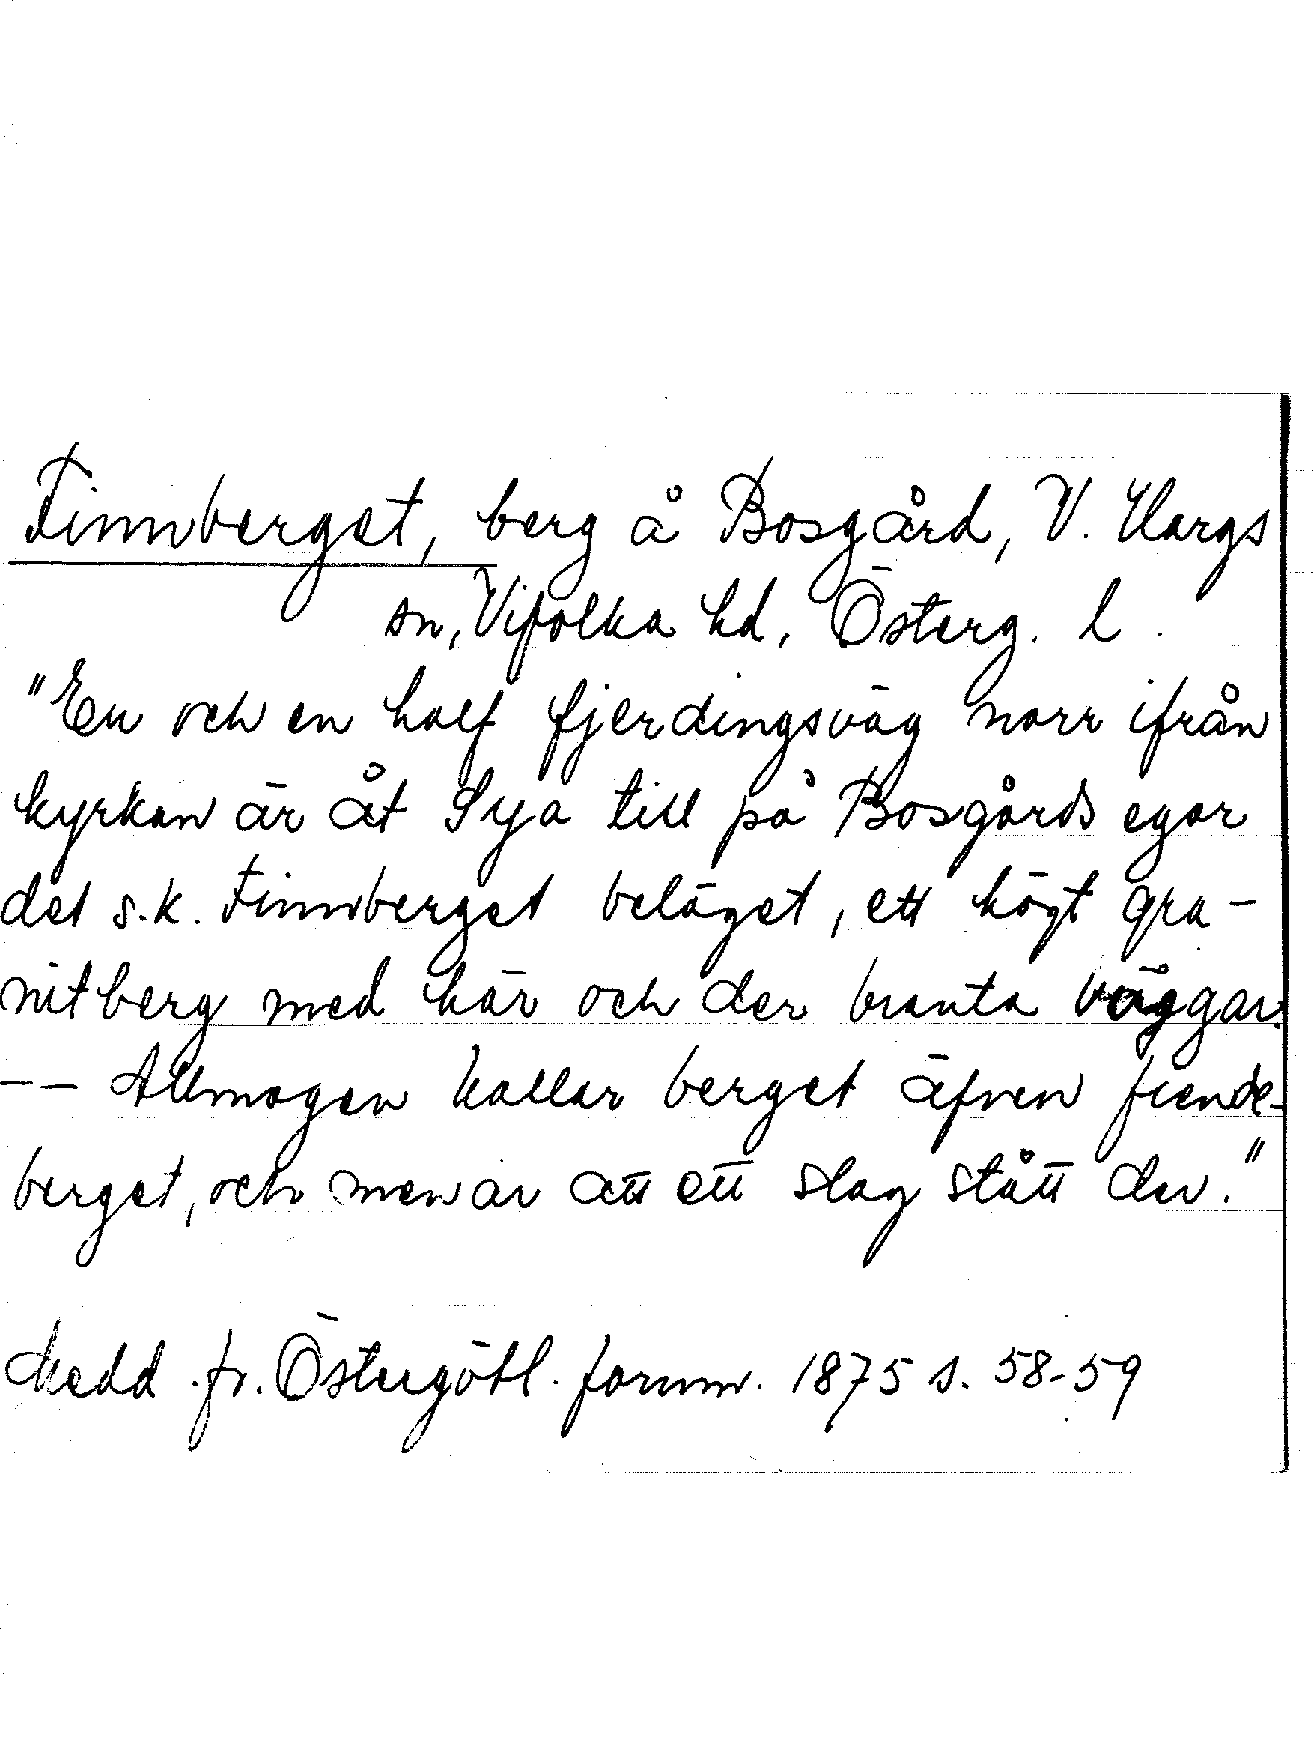 Finnberget, berg å Bosgård, V. Hargs
sn, Vifolka hd, Österg. l.
"En och en half fjerdingsväg norr ifrån
kyrkan är åt Sya till på Bosgårds egor
det s.k. Finnberget beläget, ett högt gra-
nitberg med här och der branta väggar.
-- Allmogen kallar berget äfven fiende-
berget, och menar att ett slag stått der."
Medd. fr. Östergötl. fornm. 1875 s. 58-59